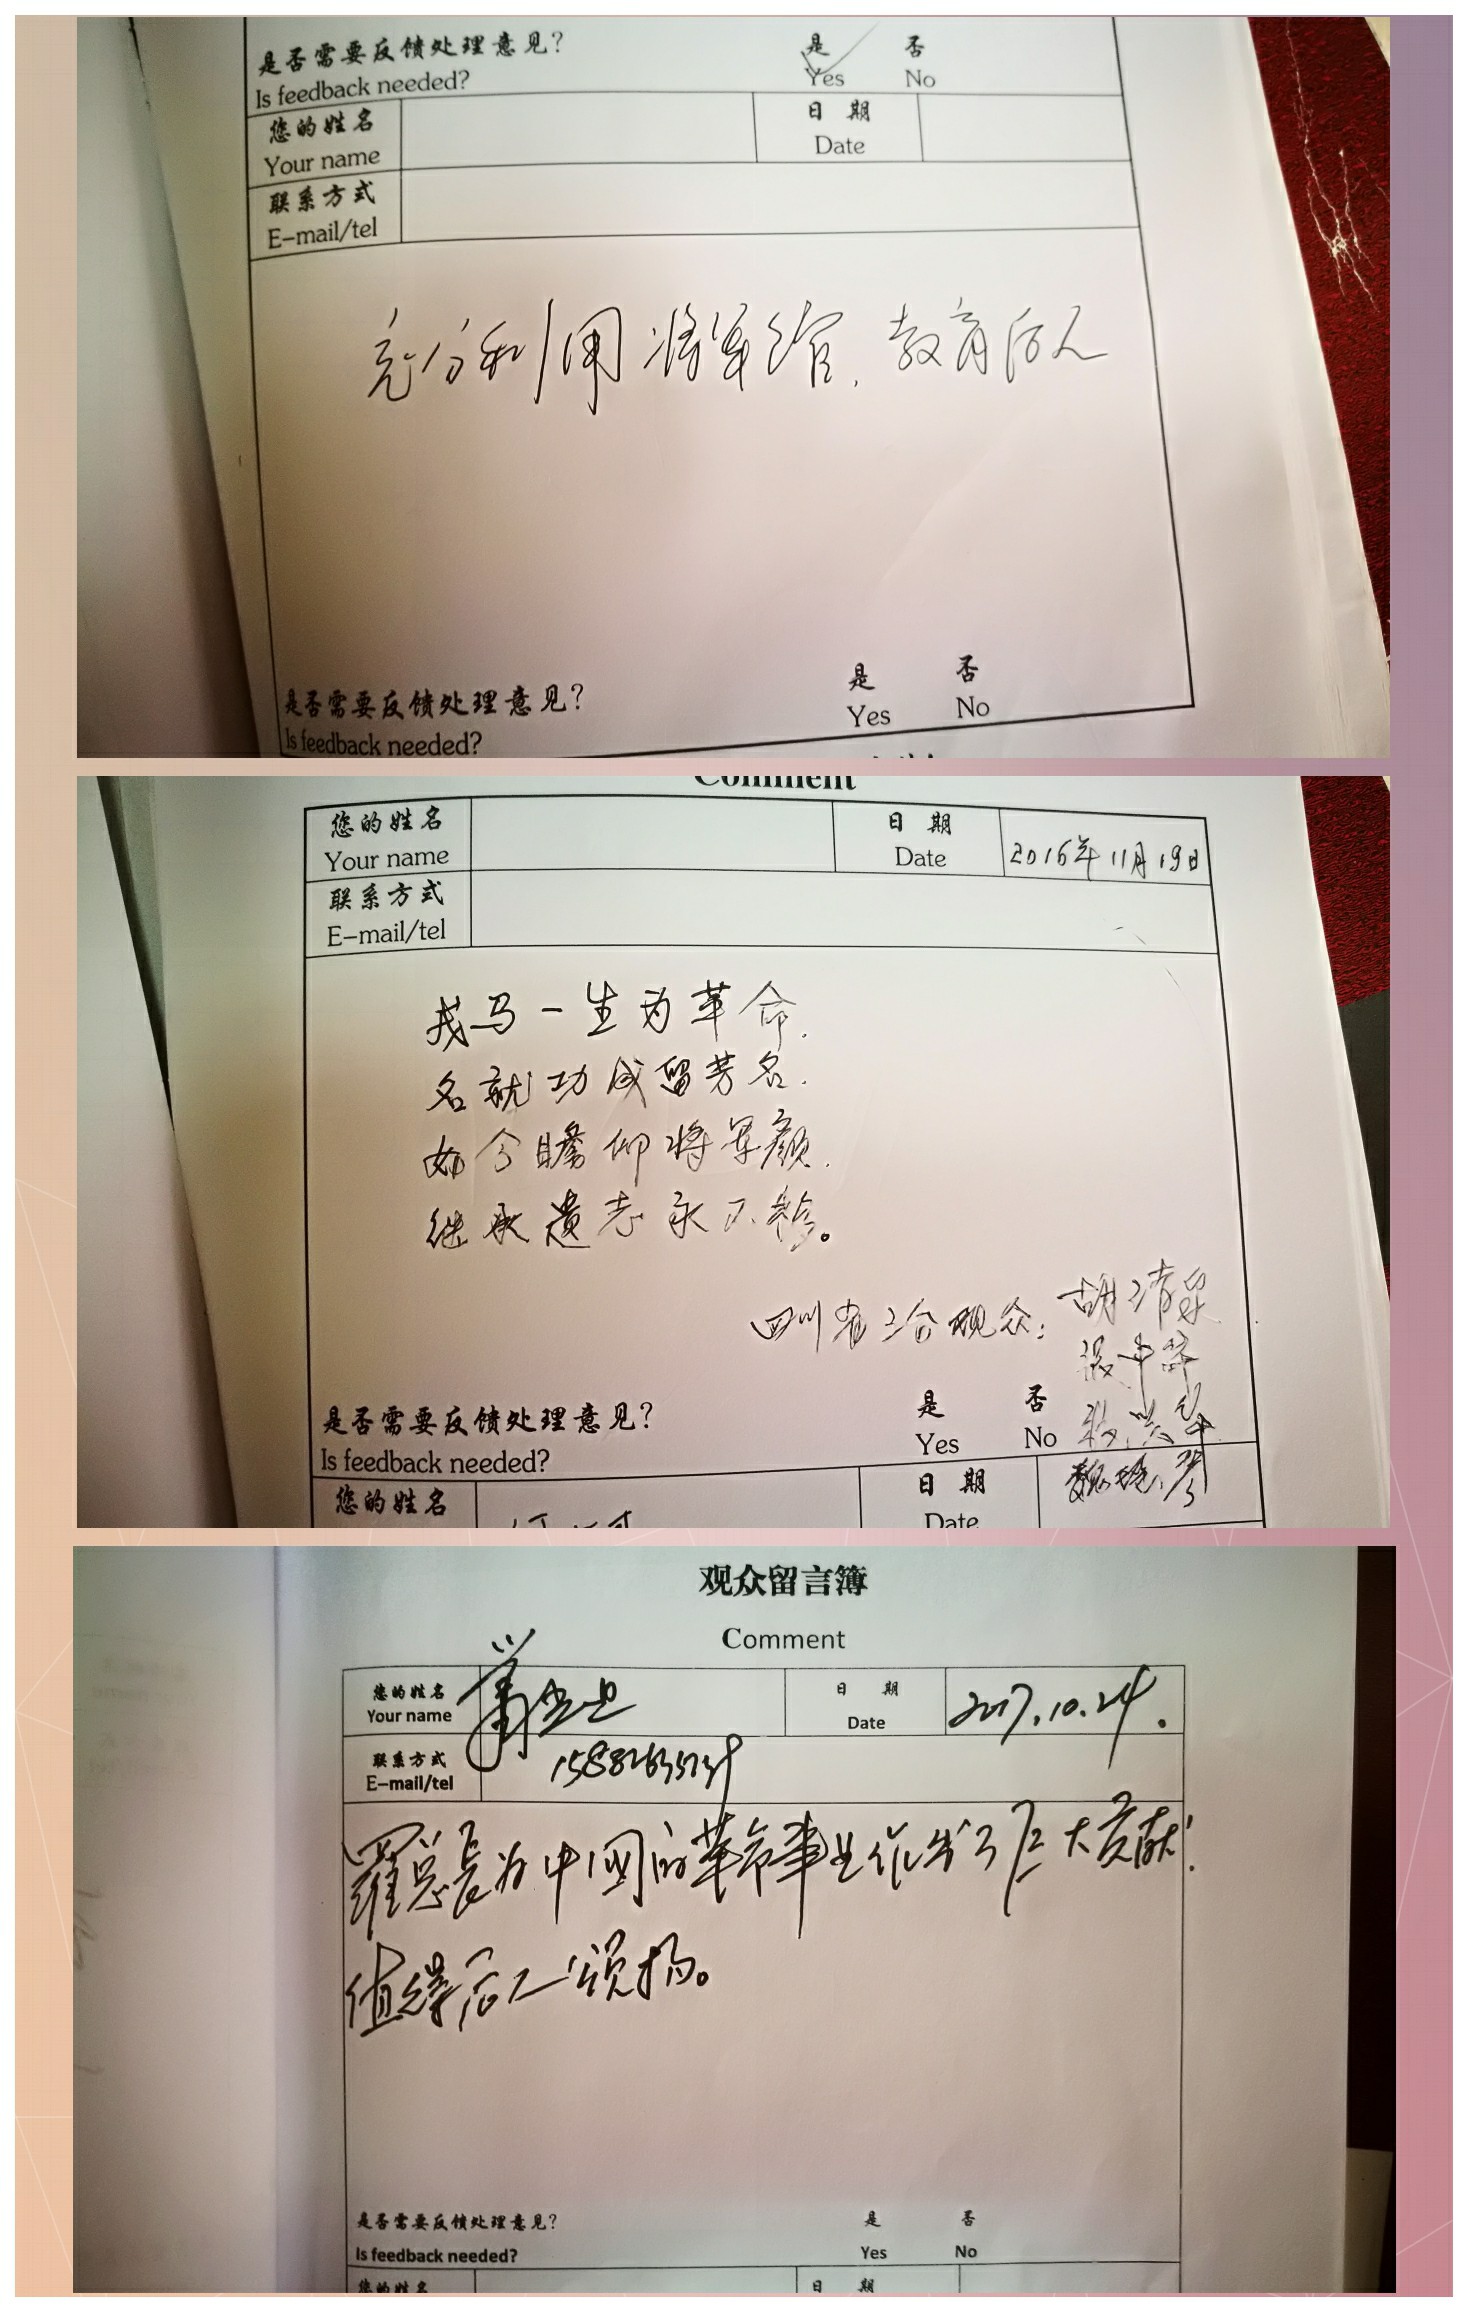 是否需要反馈处理意见? 是 否
Is feedback needed? Yes No
您的姓名 日 期
Your name Date
联系方式
E-mail/tel
充分利用将军馆，教育后人
是否需要反馈处理意见? 是 否
Is feedback needed? Yes No
Comment
您的姓名 日 期
Your name Date 2016年11月19日
联系方式
E-mail/tel
戎马一生为革命，
名就功成留芳名。
如今瞻仰将军颜，
继承遗志永不移。
四川省三台观众：胡清泉
是否需要反馈处理意见? 是 否
Is feedback needed? Yes No
您的姓名 日 期
Date
观众留言簿
Comment
您的姓名 日 期
Your name Date 2017.10.24.
联系方式
E-mail/tel
羅总長为中國的革命事业作出了巨大贡献!
值得后人颂扬。
是否需要反馈处理意见? 是 否
Is feedback needed? Yes No
您的姓名 日 期